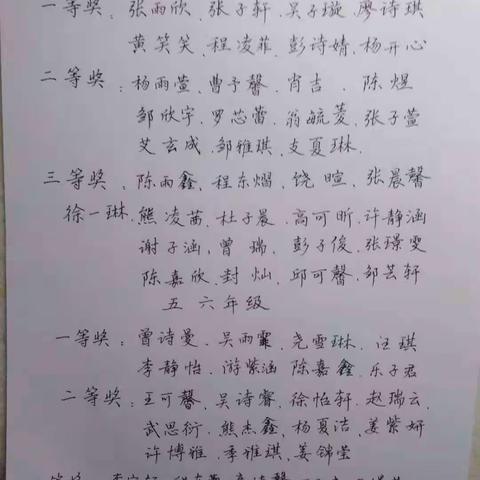 一等奖：张雨欣、张子轩、吴子璇、廖诗琪
黄笑笑、程凌菲、彭诗婧、杨开心
二等奖：杨雨萱、曹予馨、肖吉、陈煜
邹欣宇、罗芯蕾、翁毓菱、张子萱
艾玄成、邹雅琪、支夏琳.
三等奖：陈雨鑫、程东熠、饶暄、张晨馨
徐一琳、熊凌茜、杜子晨、高可昕、许静涵
谢子涵、曾瑞、彭子俊、张璟雯
陈嘉欣、封灿、邱可馨、邹芸轩
五六年级
一等奖：曾诗曼、吴雨霏、尧雪琳、汪琪
李静怡、游紫涵、陈嘉鑫、乐子君
二等奖：王可馨、吴诗睿、徐怡轩、赵瑞云、
武思衍、熊杰鑫、杨夏洁、姜紫妍
许博雅、季雅琪、姜锦莹